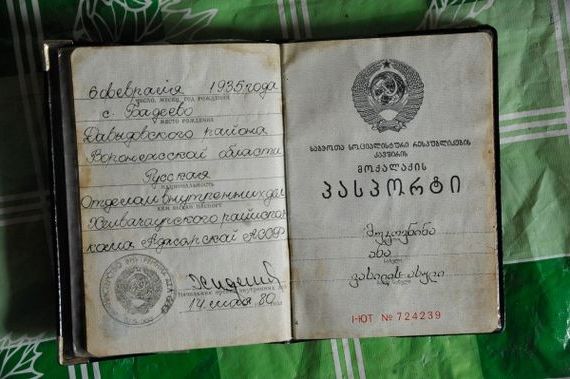 6 февраля 1935 года
число, месяц, год рождения
с. Бадеево
место рождения
Давыдовского района
Воронежской области
Русская
национальность
Отделом внутренних дел
кем выдан паспорт
Хелвачаурского райиспол-
кома Аджарской АССР
14 мая 80
საბჭოთა სოციალისტური რესპუბლიკების
კავშირის
მოქალაქის
ᲞᲐᲡᲞᲝᲠᲢᲘ
ანა
სახელი
ვასილის ასული
I-ЮТ № 724239